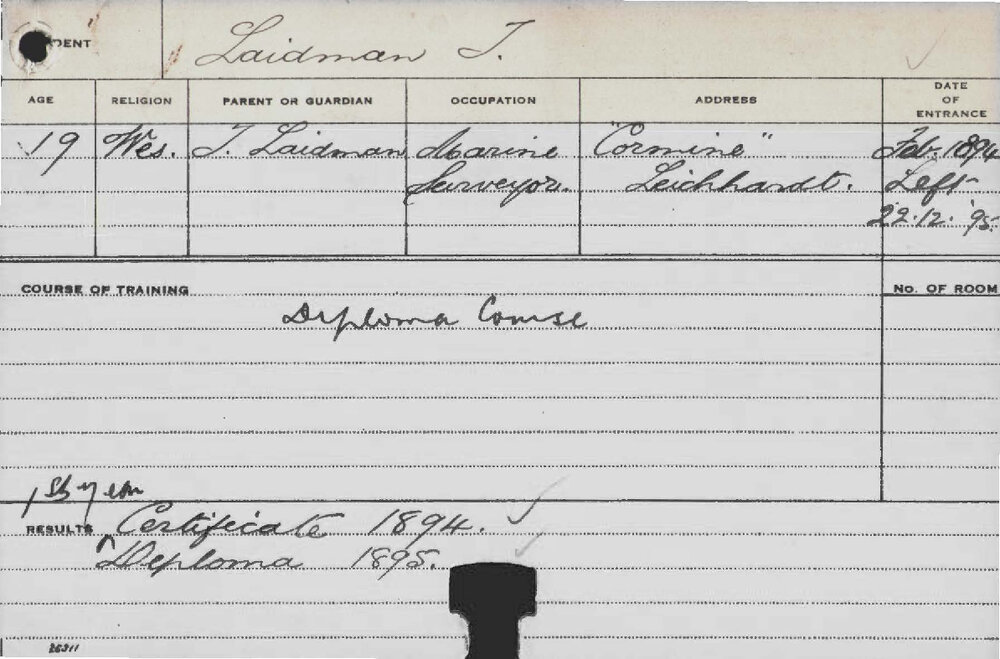 DENT Laidman T.
AGE RELIGION PARENT OR GUARDIAN OCCUPATION ADDRESS DATE OF ENTRANCE
19 Wes. T. Laidman Marine "Cormine" Feb. 1894
Surveyor. Leichhardt. Left
22.12.'95.
COURSE OF TRAINING No. OF ROOM
Diploma Course
1st year
RESULTS Certificate 1894.
Diploma 1895.
26311